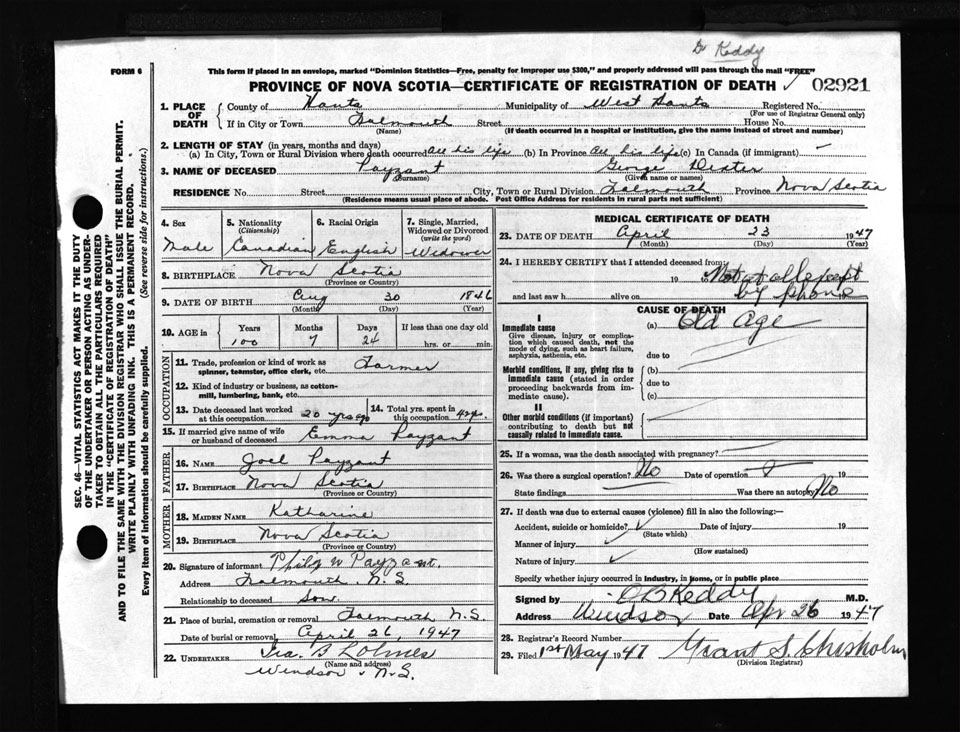 Dr Keddy
FORM 6
This form if placed in an envelope, marked "Dominion Statistics—Free, penalty for improper use $300," and properly addressed will pass through the mail "FREE"
PROVINCE OF NOVA SCOTIA—CERTIFICATE OF REGISTRATION OF DEATH 02921
1. PLACE OF DEATH
County of Hants Municipality of West Hants Registered No.
(For use of Registrar General only)
If in City or Town Falmouth Street House No.
(Name) (If death occurred in a hospital or institution, give the name instead of street and number)
2. LENGTH OF STAY (in years, months and days)
(a) In City, Town or Rural Division where death occurred All his life (b) In Province All his life (c) In Canada (if immigrant) —
3. NAME OF DECEASED Payzant George Dexter
(Surname) (Given name or names)
RESIDENCE No. Street City, Town or Rural Division Falmouth Province Nova Scotia
(Residence means usual place of abode. Post Office Address for residents in rural parts not sufficient)
SEC. 46—VITAL STATISTICS ACT MAKES IT THE DUTY
OF THE UNDERTAKER OR PERSON ACTING AS UNDER-
TAKER TO OBTAIN ALL THE PARTICULARS REQUIRED
IN THE "CERTIFICATE OF REGISTRATION OF DEATH"
AND TO FILE THE SAME WITH THE DIVISION REGISTRAR WHO SHALL ISSUE THE BURIAL PERMIT.
WRITE PLAINLY WITH UNFADING INK. THIS IS A PERMANENT RECORD.
Every item of information should be carefully supplied. (See reverse side for instructions.)
4. Sex
Male
5. Nationality
(Citizenship)
Canadian
6. Racial Origin
English
7. Single, Married, Widowed or Divorced
(write the word)
Widower
8. BIRTHPLACE Nova Scotia
(Province or Country)
9. DATE OF BIRTH Aug 30 1846
(Month) (Day) (Year)
10. AGE in Years Months Days If less than one day old
100 7 24 hrs. or min.
OCCUPATION
11. Trade, profession or kind of work as
spinner, teamster, office clerk, etc. Farmer
12. Kind of industry or business, as cotton-
mill, lumbering, bank, etc.
13. Date deceased last worked
at this occupation 20 yrs ago
14. Total yrs. spent in
this occupation
15. If married give name of wife
or husband of deceased Emma Payzant
FATHER
16. NAME Joel Payzant
17. BIRTHPLACE Nova Scotia
(Province or Country)
MOTHER
18. MAIDEN NAME Katharine
19. BIRTHPLACE Nova Scotia
(Province or Country)
20. Signature of informant Philip W Payzant.
Address Falmouth. N.S.
Relationship to deceased Son.
21. Place of burial, cremation or removal Falmouth N.S.
Date of burial or removal April 26, 1947
22. UNDERTAKER Ira. B
(Name and address)
Windsor. N.S.
MEDICAL CERTIFICATE OF DEATH
23. DATE OF DEATH April 23 1947
(Month) (Day) (Year)
24. I HEREBY CERTIFY that I attended deceased from
19 to Not at all except
and last saw h alive on by phone 19
CAUSE OF DEATH
I
Immediate cause (a) Old Age
Give disease, injury or complica-
tion which caused death, not the
mode of dying, such as heart failure,
asphyxia, asthenia, etc. due to
Morbid conditions, if any, giving rise to (b)
immediate cause (stated in order due to
proceeding backwards from im-
mediate cause). (c)
II
Other morbid conditions (if important)
contributing to death but not
causally related to immediate cause.
25. If a woman, was the death associated with pregnancy?
26. Was there a surgical operation? No Date of operation 19
State findings Was there an autopsy No
27. If death was due to external causes (violence) fill in also the following:—
Accident, suicide or homicide? Date of injury 19
(State which)
Manner of injury
(How sustained)
Nature of injury
Specify whether injury occurred in industry, in home, or in public place
Signed by O B Keddy M.D.
Address Windsor Date Apr 26 1947
28. Registrar's Record Number
29. Filed 1st May 1947 Grant S. Chisholm
(Division Registrar)